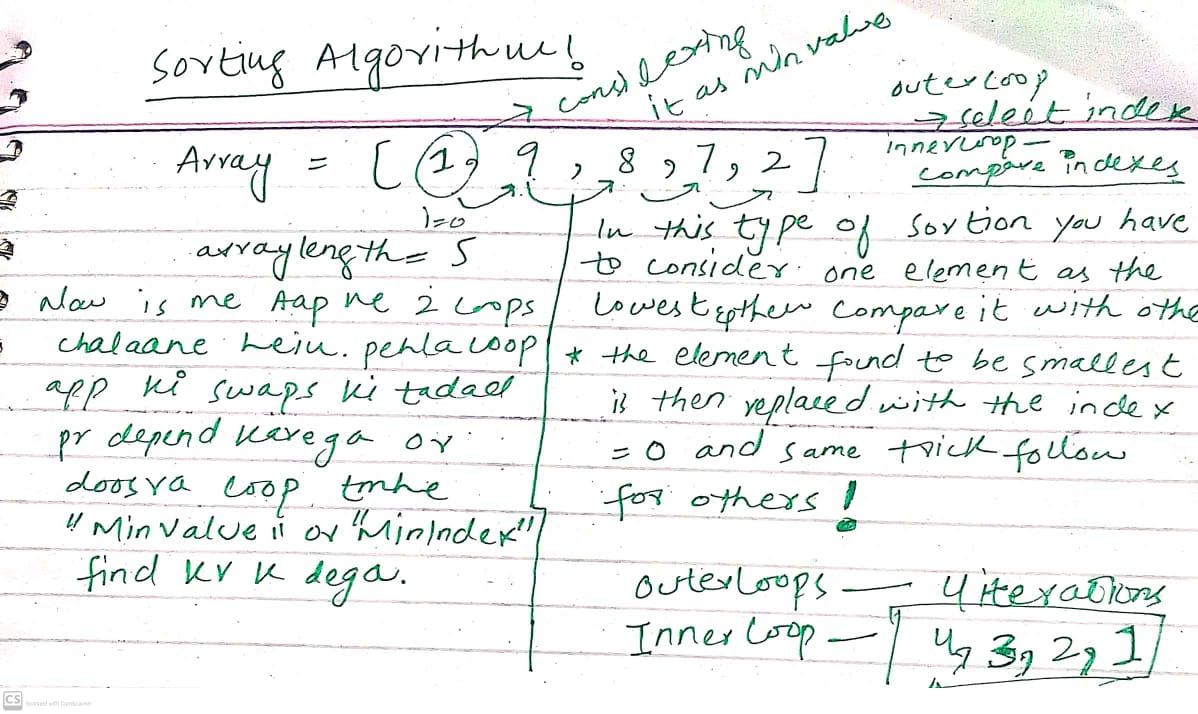 Sorting Algorithm!
→ considering
it as min value
outer loop
→ select index
inner loop —
compare indexes
Array = [ 1, 9, 8, 7, 2 ]
i=0
array length = 5
Now is me Aap ne 2 loops
chalaane hein. pehla loop
app ki swaps ki tadaad
pr depend karega or
doosra loop tmhe
"Min Value" or "MinIndex"
find kr k dega.
In this type of Sortion you have
to consider one element as the
lowest & then compare it with othe
* the element found to be smallest
is then replaced with the index
= 0 and same trick follow
for others !
Outerloops — 4 iterations
Inner loop — 4, 3, 2, 1
CS Scanned with CamScanner